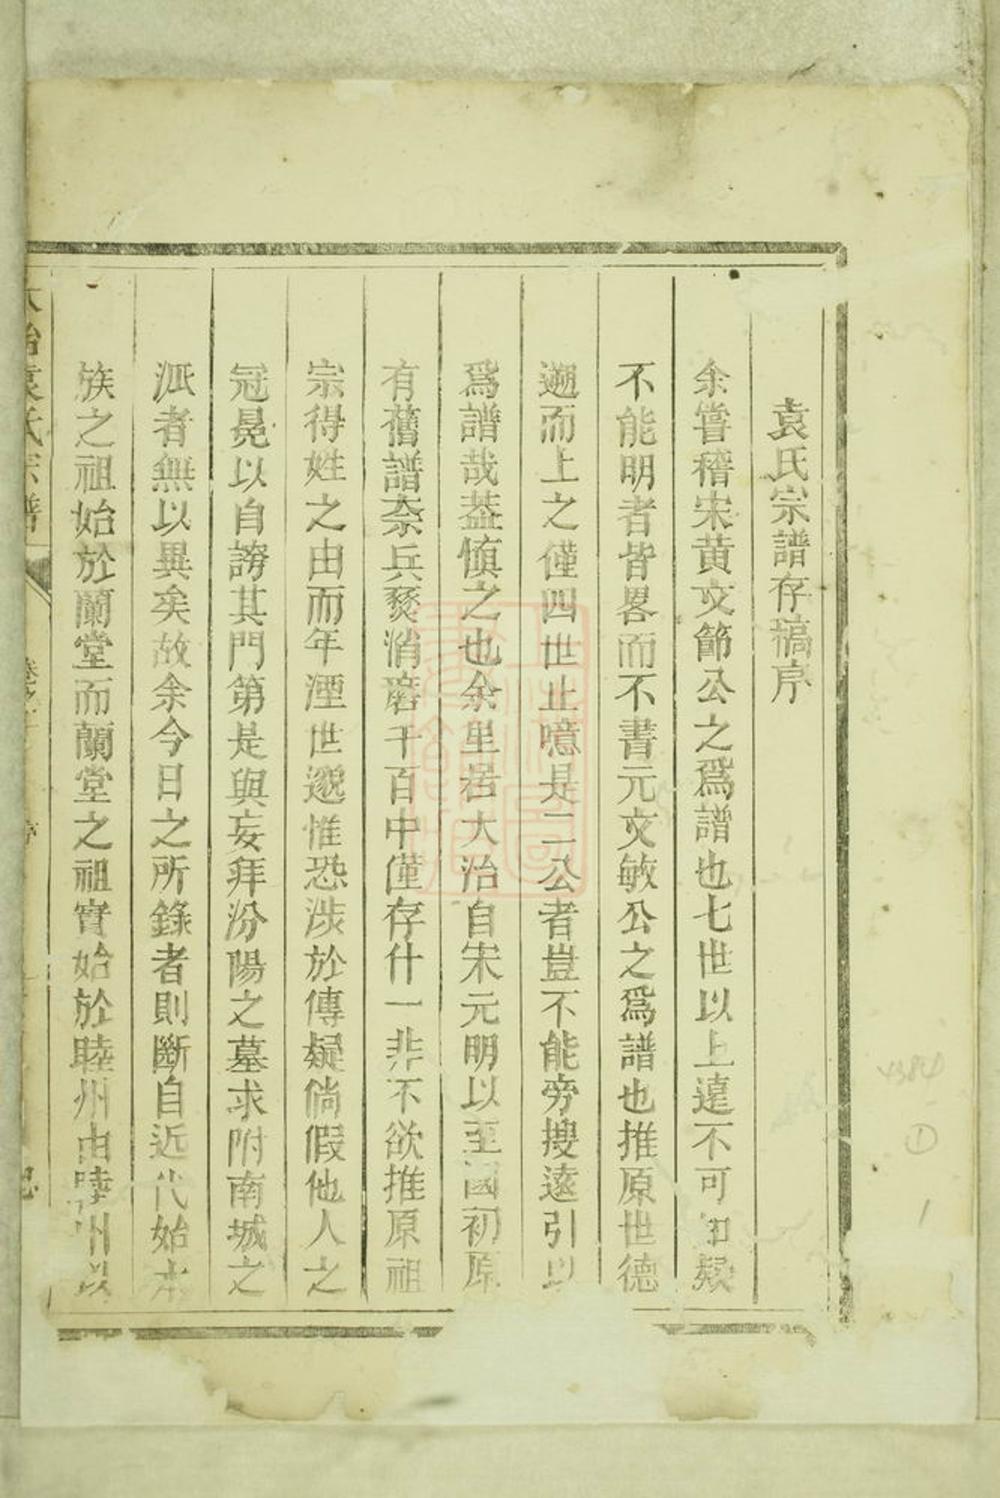 袁氏宗譜存稿序
余嘗稽宋黄文節公之爲譜也七世以上遠不可知疑
不能明者皆畧而不書元文敏公之爲譜也推原世德
遡而上之僅四世止噫是二公者豈不能旁搜遠引以
爲譜哉葢慎之也余里居大冶自宋元明以至國初原
有舊譜奈兵燹消磨千百中僅存什一非不欲推原祖
宗得姓之由而年湮世邈惟恐涉於傳疑倘假他人之
冠冕以自誇其門第是與妄拜汾陽之墓求附南城之
派者無以異矣故余今日之所錄者則斷自近代始本
族之祖始於蘭堂而蘭堂之祖實始於睦州由睦州以
大冶袁氏宗譜